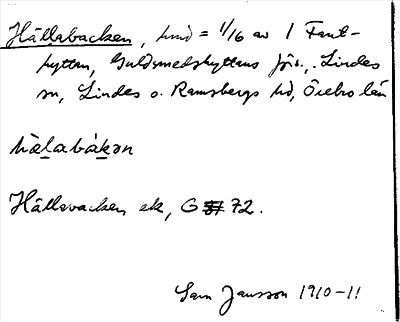 Hällabacken, hmd = 1/16 av 1 Fant-
hyttan, Guldsmedshyttans förs., Lindes
sn, Lindes o. Ramsbergs hd, Örebro län
hälabàkən
Hällsvacken ek, G 72.
Sam Jansson 1910-11